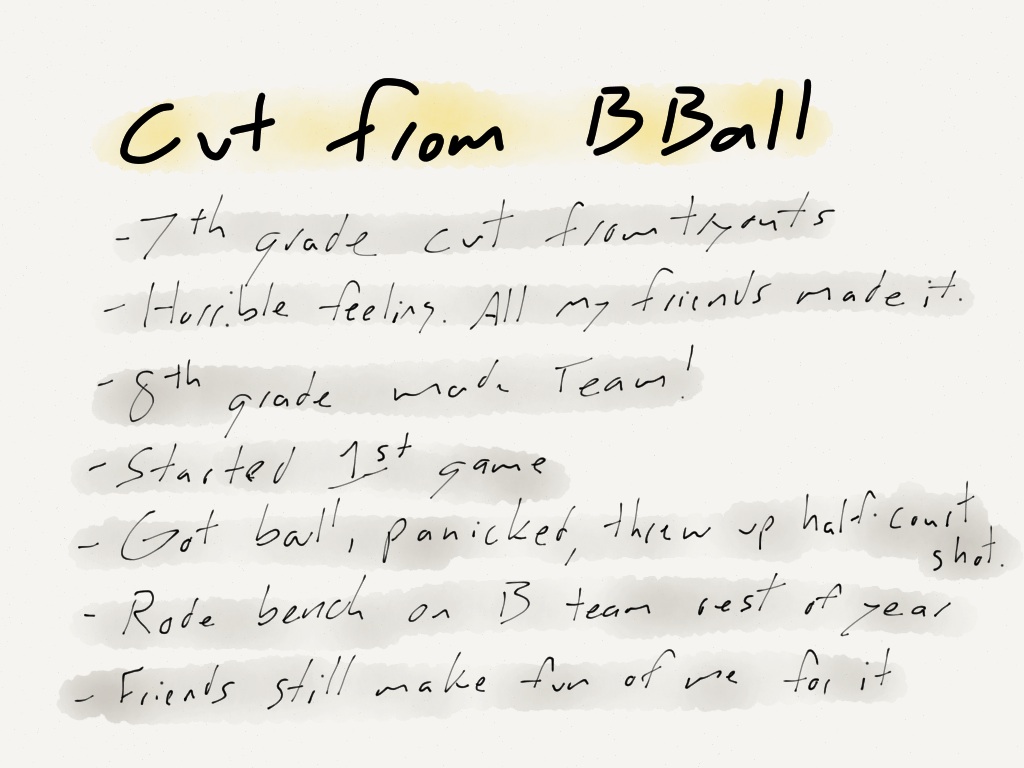 Cut from BBall
- 7th grade cut from tryouts
- Horrible feeling. All my friends made it.
- 8th grade made Team!
- Started 1st game
- Got ball, panicked, threw up half-court
shot.
- Rode bench on B team rest of year
- Friends still make fun of me for it